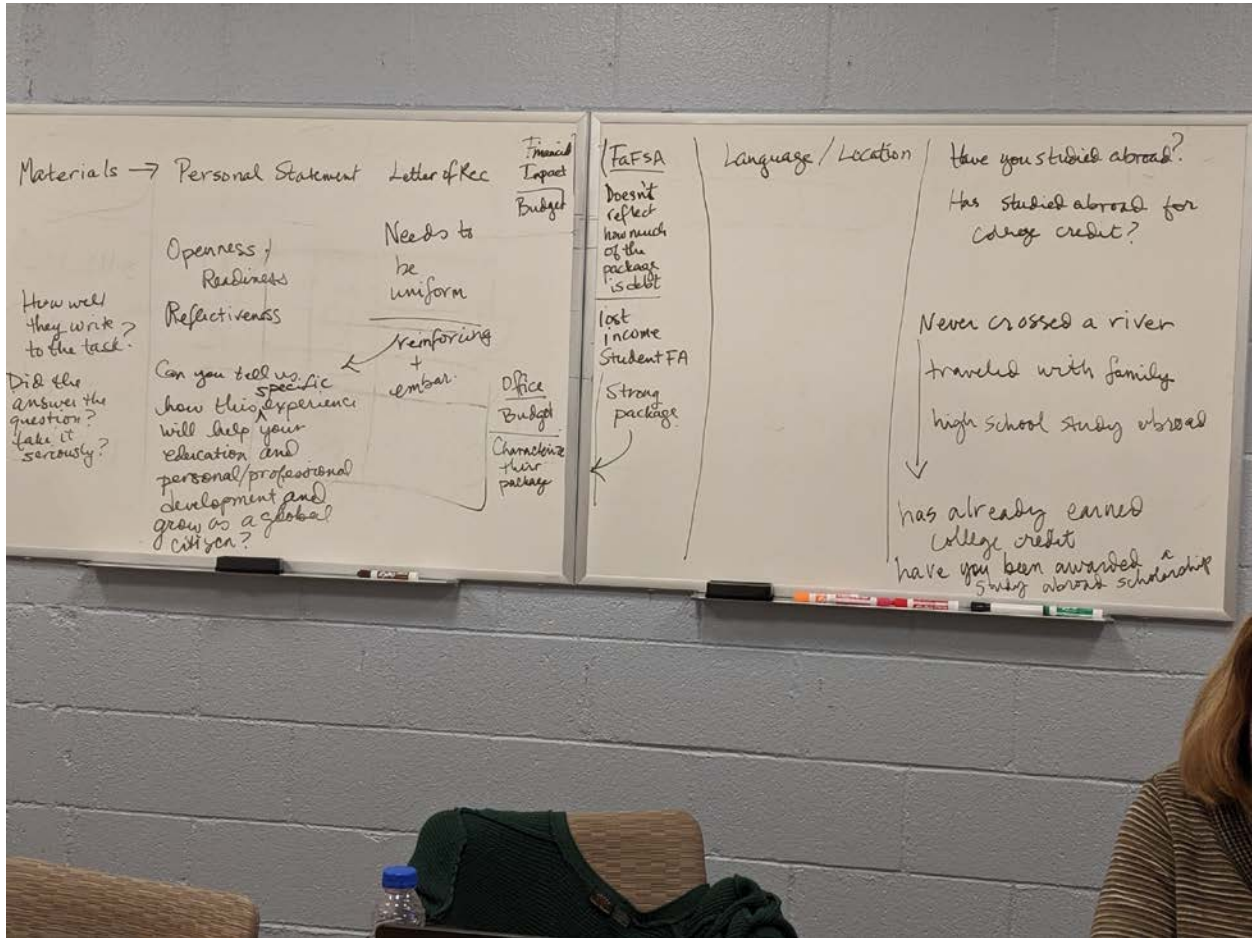 Materials → Personal Statement
Letter of Rec
Financial
Impact
Budget
How well
they write
to the task?
Did the
answer the
question?
take it
seriously?
Openness,
Readiness
Reflectiveness
Can you tell us
specific
how this ^ experience
will help your
education and
personal/professional
development and
grow as a global
citizen?
Needs to
be
uniform
reinforcing
+
embar.
Office
Budget
Characterize
their
package
FaFSA
Doesn't
reflect
how much
of the
package
is debt
lost
income
Student FA
Strong
package
Language / Location
Have you studied abroad?
Has studied abroad for
college credit?
Never crossed a river
traveled with family
high school study abroad
has already earned
college credit
have you been awarded ^ a
study abroad scholarship
EXPO